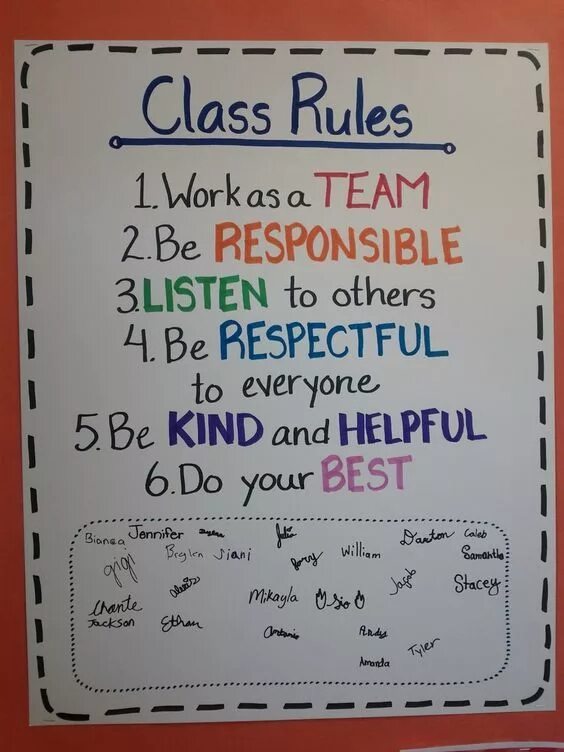 Class Rules
1. Work as a TEAM
2. Be RESPONSIBLE
3. LISTEN to others
4. Be RESPECTFUL
to everyone
5. Be KIND and HELPFUL
6. Do your BEST
Bianca Jennifer Julia Darton Caleb
gigi Siani William Samantha
Jacob Stacey
Chante Mikayla
Jackson Ethan Antonio Andy
Amanda Tyler